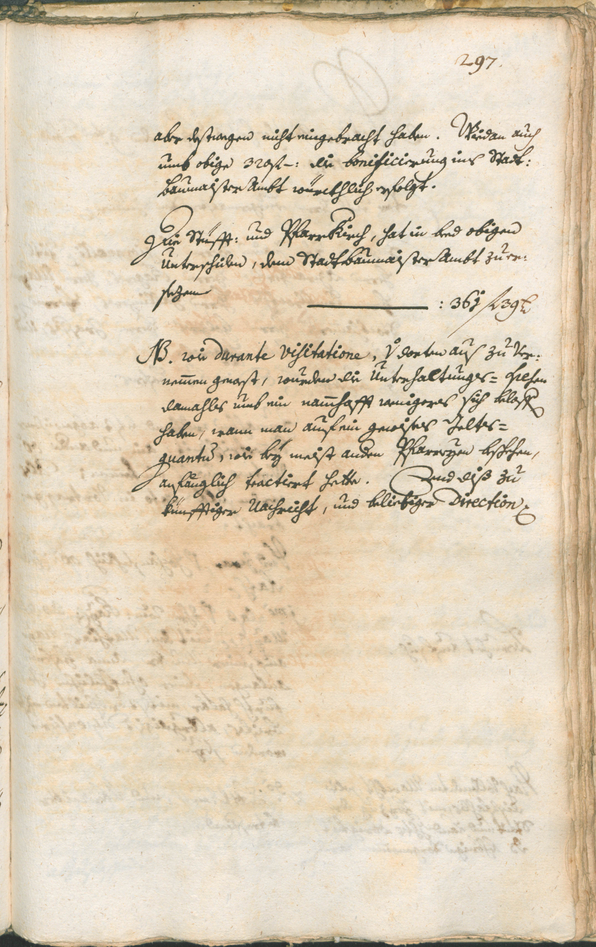 297.
aber deßwegen nicht eingebracht haben. Weeden auch
umb obige 320 f —: die bonificierung ins Statt:
baumaister Ambt würckhlich erfolgt.
Die Stüfft: und Pfarrkirch, hat in bed obigen
Unterschiden, dem Stattbaumaister Ambt zu er:
sezen
: 361 f 39
NB. wie durante Visitatione, dorten auß zu Ver:
nemmen gewest, wurden die Unterhaltungs=
damahls umb ein namhafft wenigeres sich
haben, wann man auf ein gewises Zeltes=
quantu, wie bey meist anderen Pfarreyen beschehen,
anfänglich tractiert hette. Und diß zu
künfftiger Nachricht, und beliebiger Direction